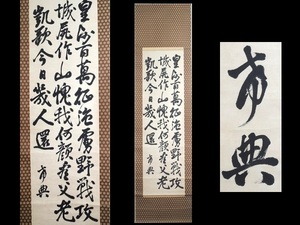 皇師百萬征強虜野戰攻
城屍作山愧我何顔看父老
凱歌今日幾人還
希典
皇師百萬征強虜野戰攻
城屍作山愧我何顔看父老
凱歌今日幾人還
希典
希典